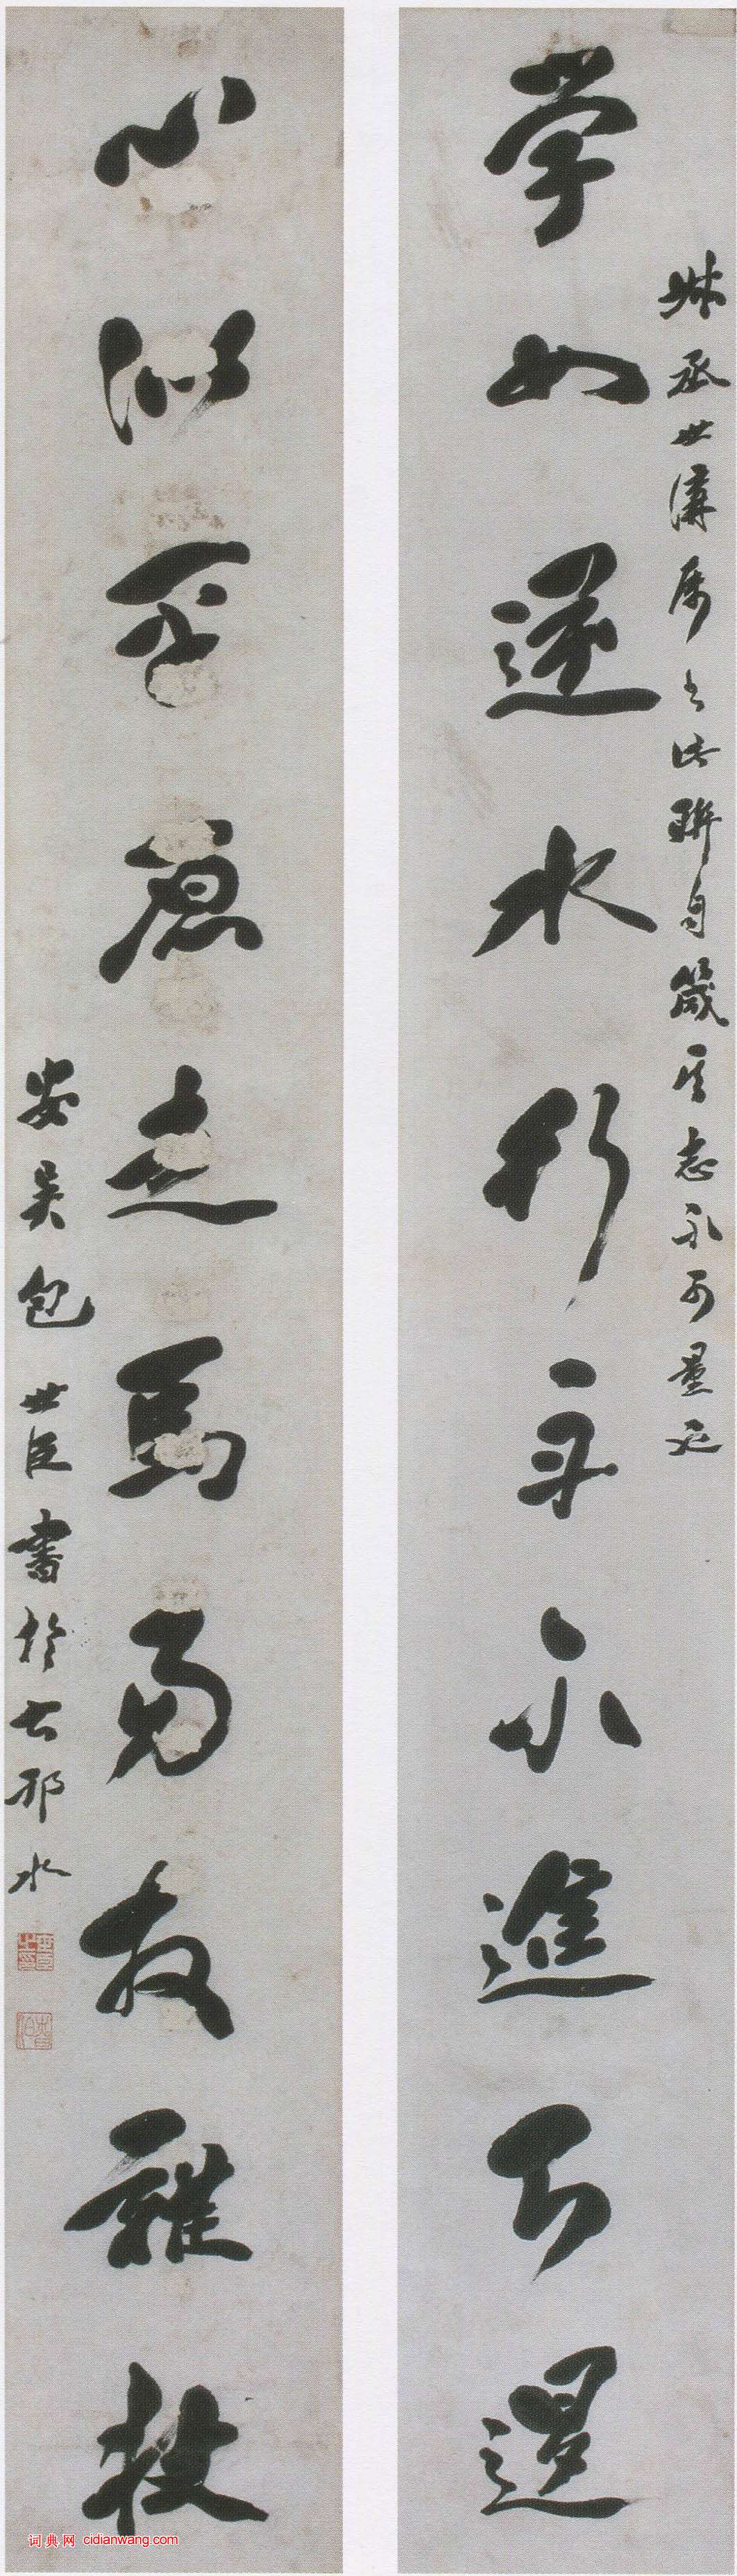 學如逆水行舟不進則退
丞世講属書此聯自箴其志不可量也
心似平原走馬易放難收
安吳包世臣書於古邗水
词典网 cidianwang.com